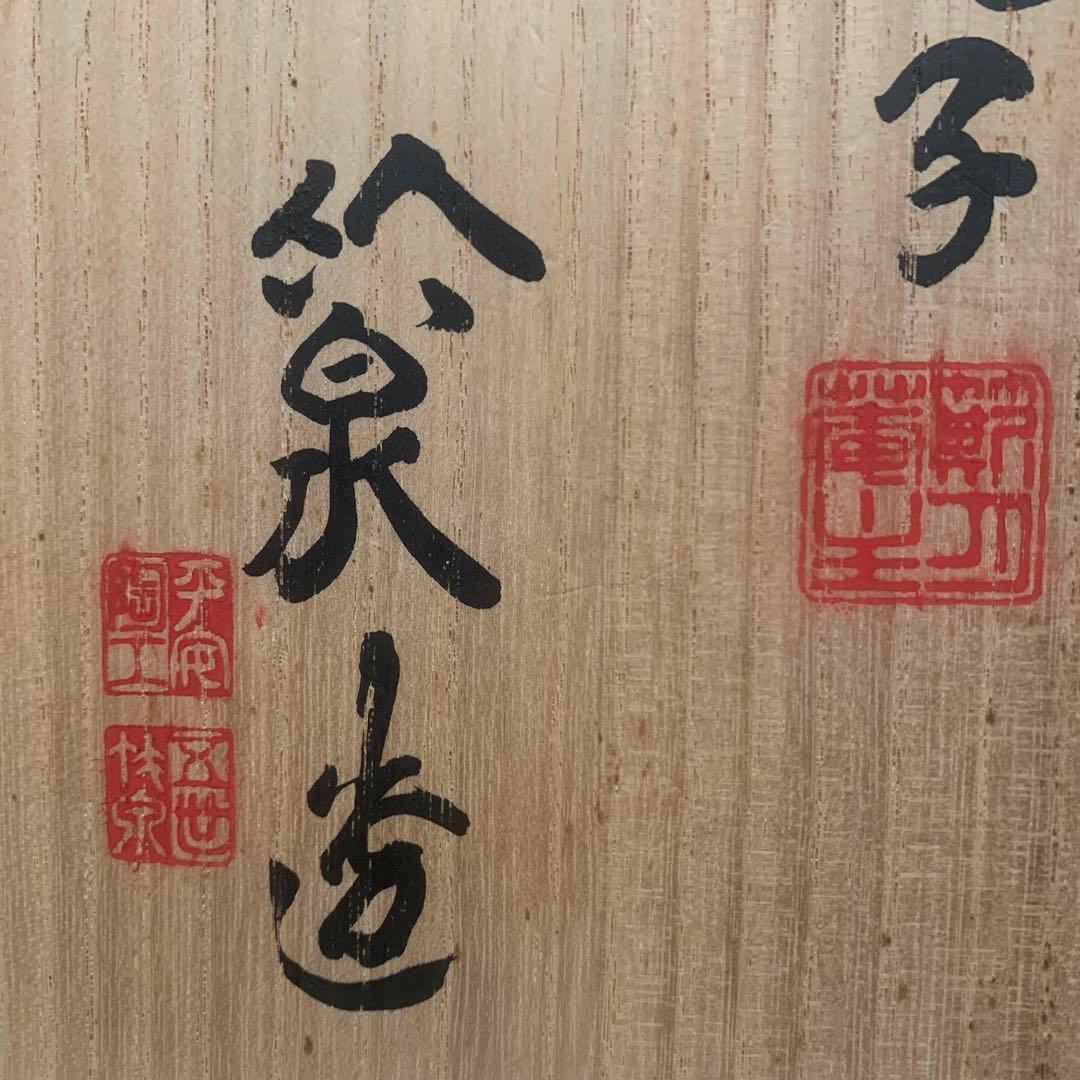 子
菴主
竹泉造
平安
陶工
五世
竹泉